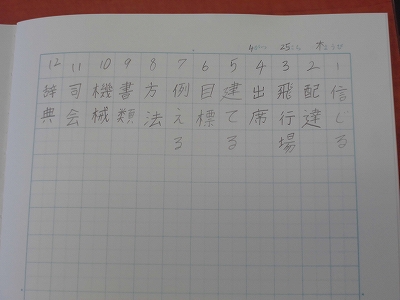 1 信じる
2 配達
3 飛行場
4 出席
5 建てる
6 目標
7 例える
8 方法
9 書類
10 機械
11 司会
12 辞典